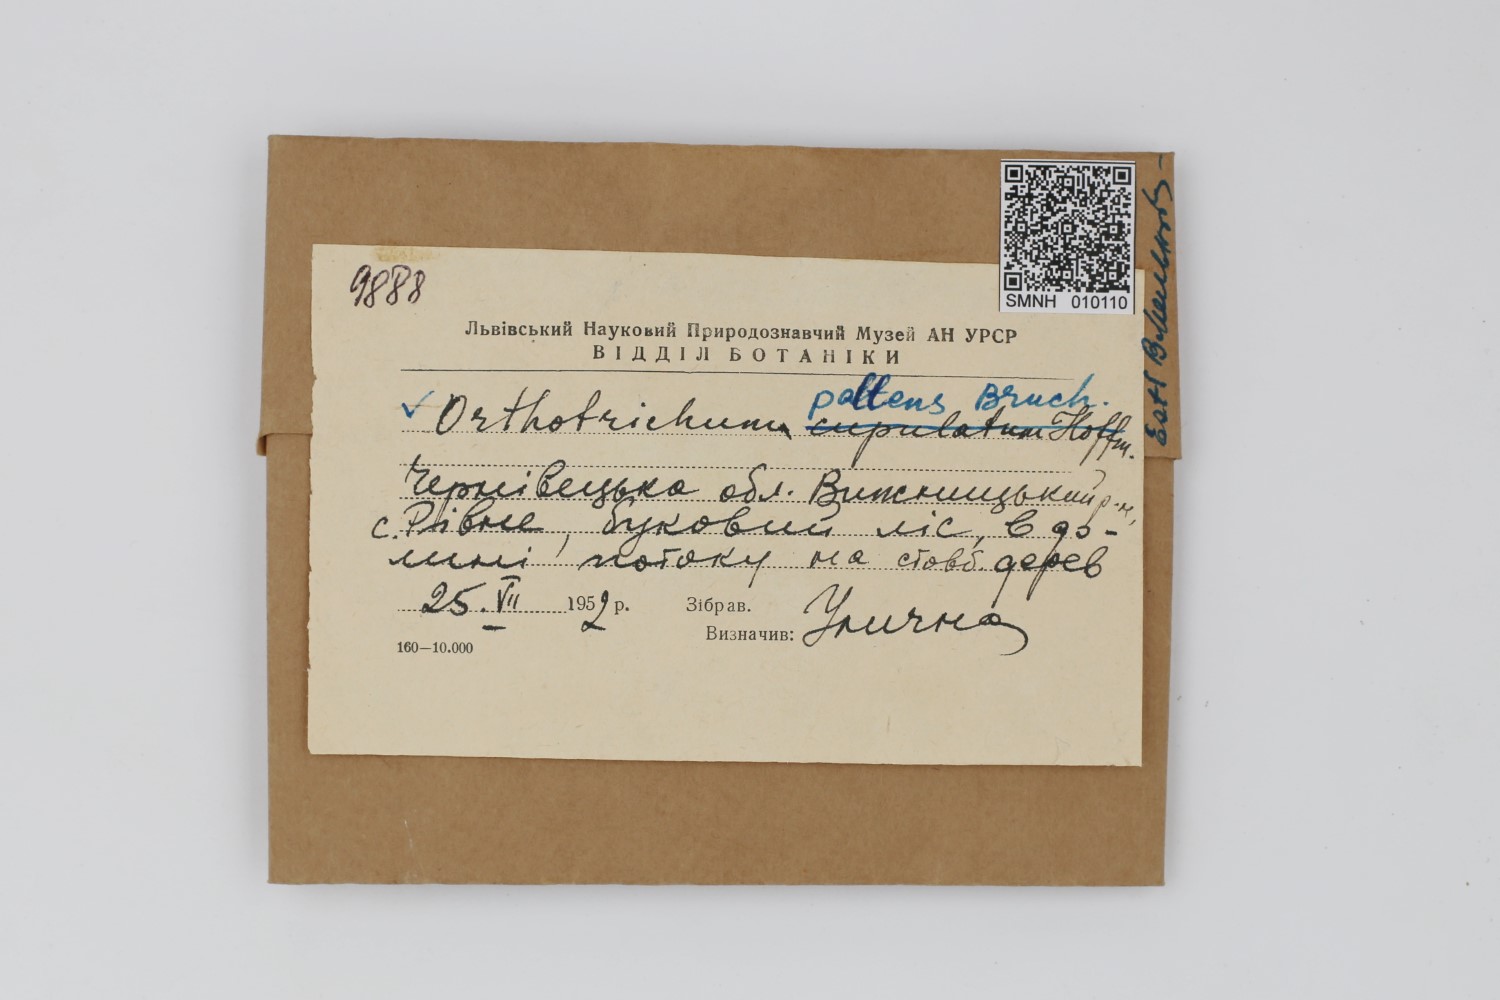 SMNH 010110
9888
Львівський Науковий Природознавчий Музей АН УРСР
ВІДДІЛ БОТАНІКИ
pallens Bruch.
✓ Orthotrichum cupulatum Hoffm.
Чернівецька обл. Вижницький р-н,
с. Рівне, буковий ліс, в до-
лині потоку на стовб. дерев
25.VII 1952 р. Зібрав.
Визначив: Улична
160—10.000